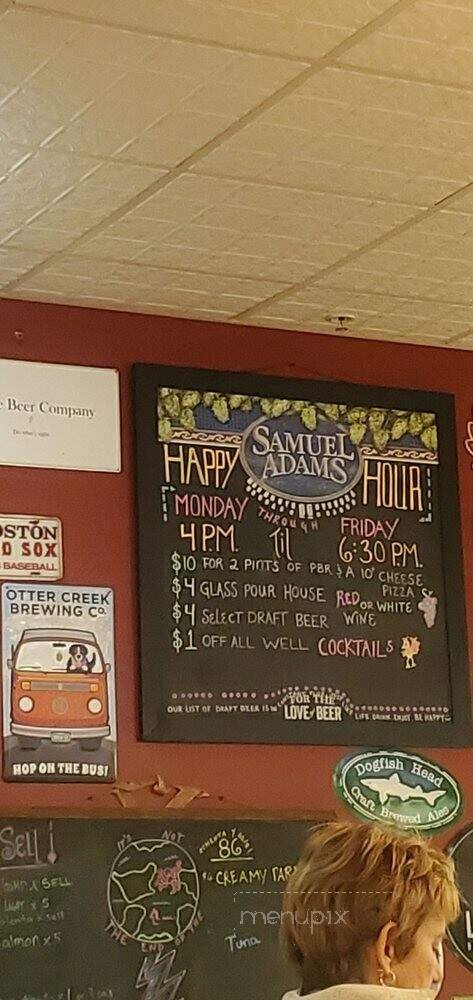 e Beer Company
SAMUEL
ADAMS
HAPPY HOUR
MONDAY THROUGH FRIDAY
4 P.M. Til 6:30 P.M.
$10 FOR 2 PINTS OF PBR & A 10" CHEESE
PIZZA
$4 GLASS POUR HOUSE RED OR WHITE
WINE
$4 SELECT DRAFT BEER
$1 OFF ALL WELL COCKTAILS
FOR THE
LOVE OF BEER
OUR LIST OF DRAFT BEER IS
LIFE. DRINK. ENJOY. BE HAPPY
OSTON
D SOX
BASEBALL
OTTER CREEK
BREWING CO.
HOP ON THE BUS!
Dogfish Head
Craft Brewed Ales
Sell
x SELL
x 5
x sell
almon x 5
IT'S NOT
THE END OF THE
86
CREAMY PAR
Tuna
menupix